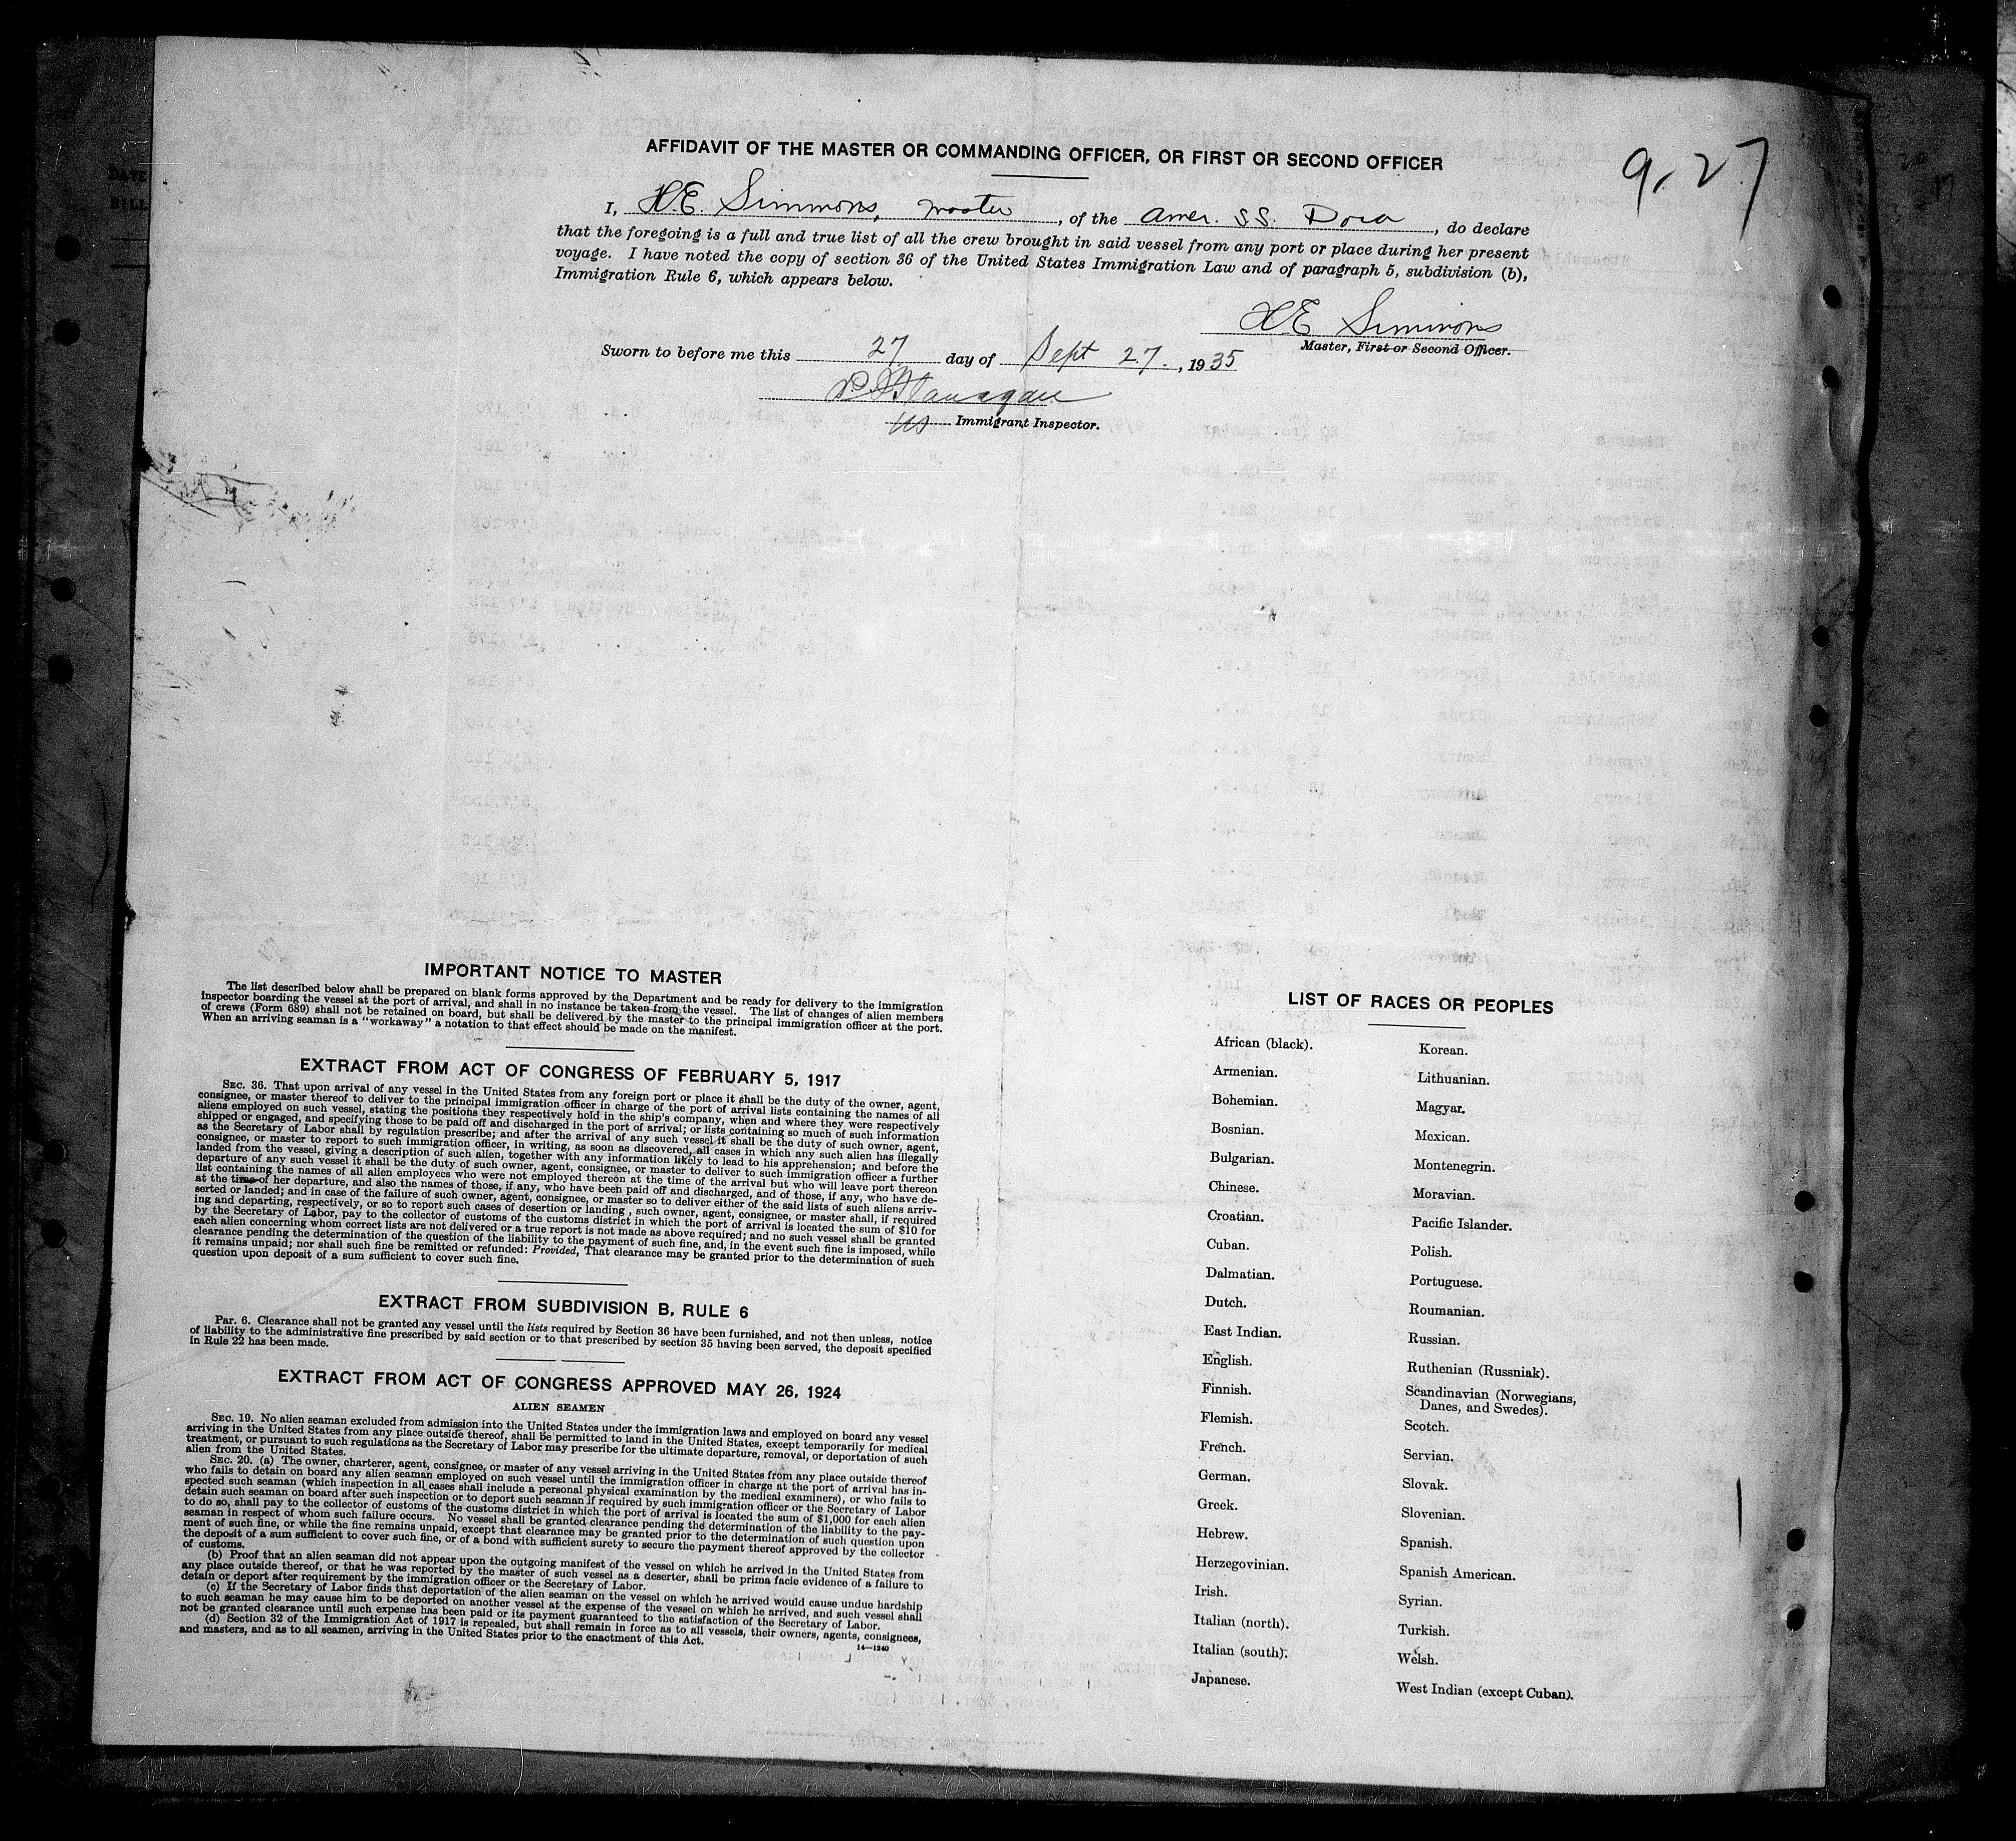 9.27
AFFIDAVIT OF THE MASTER OR COMMANDING OFFICER, OR FIRST OR SECOND OFFICER
I, H.E. Simmons, master, of the Amer. SS. Dora, do declare
that the foregoing is a full and true list of all the crew brought in said vessel from any port or place during her present
voyage. I have noted the copy of section 36 of the United States Immigration Law and of paragraph 5, subdivision (b),
Immigration Rule 6, which appears below.
H E Simmons
Master, First or Second Officer.
Sworn to before me this 27 day of Sept 27., 1935
Immigrant Inspector.
IMPORTANT NOTICE TO MASTER
The list described below shall be prepared on blank forms approved by the Department and be ready for delivery to the immigration
inspector boarding the vessel at the port of arrival, and shall in no instance be taken from the vessel. The list of changes of alien members
of crews (Form 689) shall not be retained on board, but shall be delivered by the master to the principal immigration officer at the port.
When an arriving seaman is a "workaway" a notation to that effect should be made on the manifest.
EXTRACT FROM ACT OF CONGRESS OF FEBRUARY 5, 1917
SEC. 36. That upon arrival of any vessel in the United States from any foreign port or place it shall be the duty of the owner, agent,
consignee, or master thereof to deliver to the principal immigration officer in charge of the port of arrival lists containing the names of all
aliens employed on such vessel, stating the positions they respectively hold in the ship's company, when and where they were respectively
shipped or engaged, and specifying those to be paid off and discharged in the port of arrival; or lists containing so much of such information
as the Secretary of Labor shall by regulation prescribe; and after the arrival of any such vessel it shall be the duty of such owner, agent,
consignee, or master to report to such immigration officer, in writing, as soon as discovered, all cases in which any such alien has illegally
landed from the vessel, giving a description of such alien, together with any information likely to lead to his apprehension; and before the
departure of any such vessel it shall be the duty of such owner, agent, consignee, or master to deliver to such immigration officer a further
list containing the names of all alien employees who were not employed thereon at the time of the arrival but who will leave port thereon
at the time of her departure, and also the names of those, if any, who have been paid off and discharged, and of those, if any, who have de-
serted or landed; and in case of the failure of such owner, agent, consignee, or master so to deliver either of the said lists of such aliens arriv-
ing and departing, respectively, or so to report such cases of desertion or landing, such owner, agent, consignee, or master shall, if required
by the Secretary of Labor, pay to the collector of customs of the customs district in which the port of arrival is located the sum of $10 for
each alien concerning whom correct lists are not delivered or a true report is not made as above required; and no such vessel shall be granted
clearance pending the determination of the question of the liability to the payment of such fine, and, in the event such fine is imposed, while
it remains unpaid; nor shall such fine be remitted or refunded: Provided, That clearance may be granted prior to the determination of such
question upon deposit of a sum sufficient to cover such fine.
EXTRACT FROM SUBDIVISION B, RULE 6
Par. 6. Clearance shall not be granted any vessel until the lists required by Section 36 have been furnished, and not then unless, notice
of liability to the administrative fine prescribed by said section or to that prescribed by section 35 having been served, the deposit specified
in Rule 22 has been made.
EXTRACT FROM ACT OF CONGRESS APPROVED MAY 26, 1924
ALIEN SEAMEN
SEC. 19. No alien seaman excluded from admission into the United States under the immigration laws and employed on board any vessel
arriving in the United States from any place outside thereof, shall be permitted to land in the United States, except temporarily for medical
treatment, or pursuant to such regulations as the Secretary of Labor may prescribe for the ultimate departure, removal, or deportation of such
alien from the United States.
SEC. 20. (a) The owner, charterer, agent, consignee, or master of any vessel arriving in the United States from any place outside thereof
who fails to detain on board any alien seaman employed on such vessel until the immigration officer in charge at the port of arrival has in-
spected such seaman (which inspection in all cases shall include a personal physical examination by the medical examiners), or who fails to
detain such seaman on board after such inspection or to deport such seaman if required by such immigration officer or the Secretary of Labor
to do so, shall pay to the collector of customs of the customs district in which the port of arrival is located the sum of $1,000 for each alien
seaman in respect of whom such failure occurs. No vessel shall be granted clearance pending the determination of the liability to the pay-
ment of such fine, or while the fine remains unpaid, except that clearance may be granted prior to the determination of such question upon
the deposit of a sum sufficient to cover such fine, or of a bond with sufficient surety to secure the payment thereof approved by the collector
of customs.
(b) Proof that an alien seaman did not appear upon the outgoing manifest of the vessel on which he arrived in the United States from
any place outside thereof, or that he was reported by the master of such vessel as a deserter, shall be prima facie evidence of a failure to
detain or deport after requirement by the immigration officer or the Secretary of Labor.
(c) If the Secretary of Labor finds that deportation of the alien seaman on the vessel on which he arrived would cause undue hardship
to such seaman he may cause him to be deported on another vessel at the expense of the vessel on which he arrived, and such vessel shall
not be granted clearance until such expense has been paid or its payment guaranteed to the satisfaction of the Secretary of Labor.
(d) Section 32 of the Immigration Act of 1917 is repealed, but shall remain in force as to all vessels, their owners, agents, consignees,
and masters, and as to all seamen, arriving in the United States prior to the enactment of this Act.
14—1240
LIST OF RACES OR PEOPLES
African (black).
Armenian.
Bohemian.
Bosnian.
Bulgarian.
Chinese.
Croatian.
Cuban.
Dalmatian.
Dutch.
East Indian.
English.
Finnish.
Flemish.
French.
German.
Greek.
Hebrew.
Herzegovinian.
Irish.
Italian (north).
Italian (south).
Japanese.
Korean.
Lithuanian.
Magyar.
Mexican.
Montenegrin.
Moravian.
Pacific Islander.
Polish.
Portuguese.
Roumanian.
Russian.
Ruthenian (Russniak).
Scandinavian (Norwegians,
Danes, and Swedes).
Scotch.
Servian.
Slovak.
Slovenian.
Spanish.
Spanish American.
Syrian.
Turkish.
Welsh.
West Indian (except Cuban).